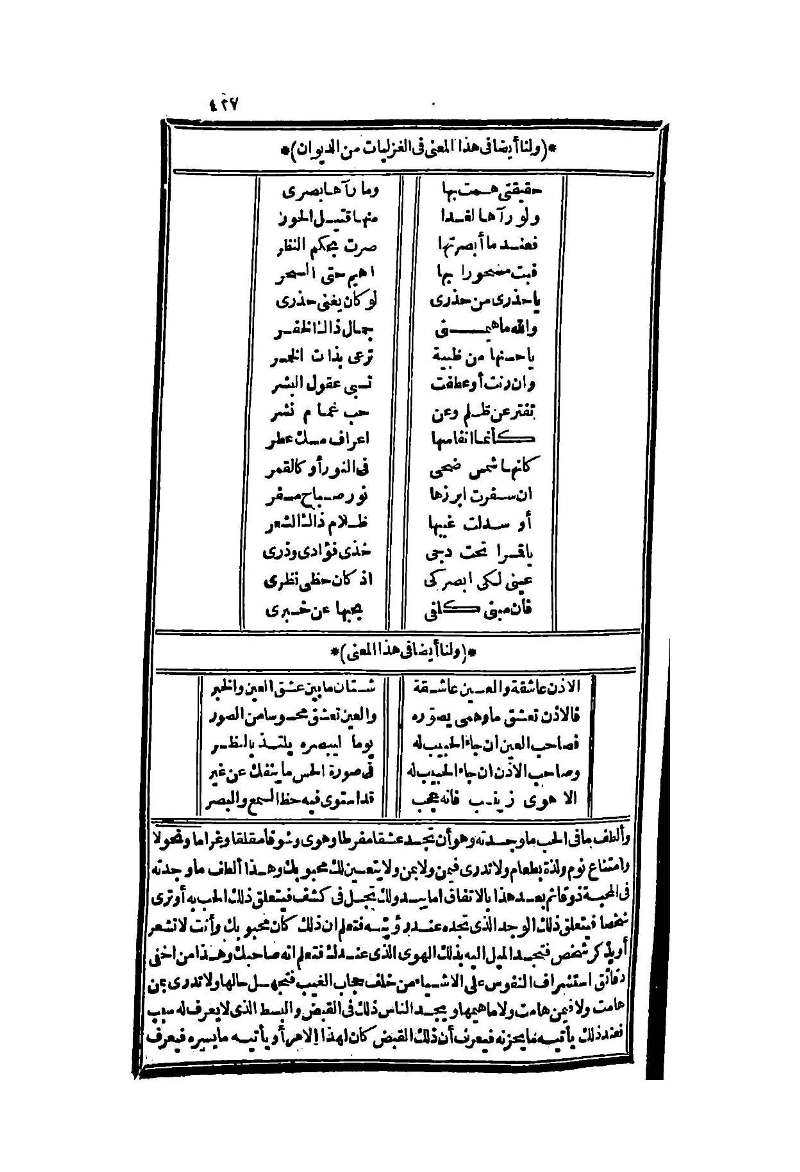 ٤٢٧
*(ولنا أيضا فى هذا المعنى فى الغزليات من الديوان)*
حقيقتى همت بها وما رآها بصرى
ولو رآها لغدا منها قتيل الحور
فعند ما أبصرتها صرت بحكم النظر
فبت مسحورا بها اهيم حتى السحر
يا حذرى من حذرى لو كان يغنى حذرى
والله ما هيمنى جمال ذاك الخفر
يا حسنها من ظبية ترعى بذات الخمر
وان رنت أو عطفت تسبى عقول البشر
تفتر عن ظلم وعن حب غمام نشر
كأنما انفاسها اعراف مسك عطر
كانها شمس ضحى فى النور أو كالقمر
ان سفرت ابرزها نور صباح مسفر
أو سدلت غيبها ظلام ذاك الشعر
يا قمرا تحت دجى خذى فؤادى وذرى
عينى لكى ابصركى اذ كان حظى نظرى
فان مبنى كلفى بحبها عن خبرى
*(ولنا أيضا فى هذا المعنى)*
الاذن عاشقة والعين عاشقة شتان ما بين عشق العين والخبر
فالاذن تعشق ما وهمى يصوره والعين تعشق محسوسا من الصور
فصاحب العين ان جاء الحبيب له يوما ليبصره يلتذ بالنظر
وصاحب الاذن ان جاء الحبيب له فى صورة الحس ما ينفك عن غير
الا هوى زينب فانه عجب قد استوى فيه حظ السمع والبصر
وألطف ما فى الحب ما وجدته وهو أن تجد عشقا مفرطا وهوى وشوقا مقلقا وغراما ونحولا
وامتناع نوم ولذة بطعام ولا تدرى فيمن ولا بمن ولا يتعين لك محبوبك وهذا ألطف ما وجدته
فى المحبة ذوقا ثم بعد هذا بالاتفاق اما يبدو لك تجل فى كشف فيتعلق ذلك الحب به أو ترى
شخصا فيتعلق ذلك الوجد الذى تجده عند رؤيته فتعلم ان ذلك كان محبوبك وأنت لا تشعر
أو يذكر شخص فتجد الميل اليه بذلك الهوى الذى عندك فتعلم انه صاحبك وهذا من اخفى
دقائق استشراف النفوس على الاشياء من خلف حجاب الغيب فتجهل حالها ولا تدرى بمن
هامت ولا فيمن هامت ولا ما هيمها ويجد الناس ذلك فى القبض والبسط الذى لا يعرف له سبب
فعند ذلك يأتيه ما يحزنه فيعرف أن ذلك القبض كان لهذا الامر أو يأتيه ما يسره فيعرف